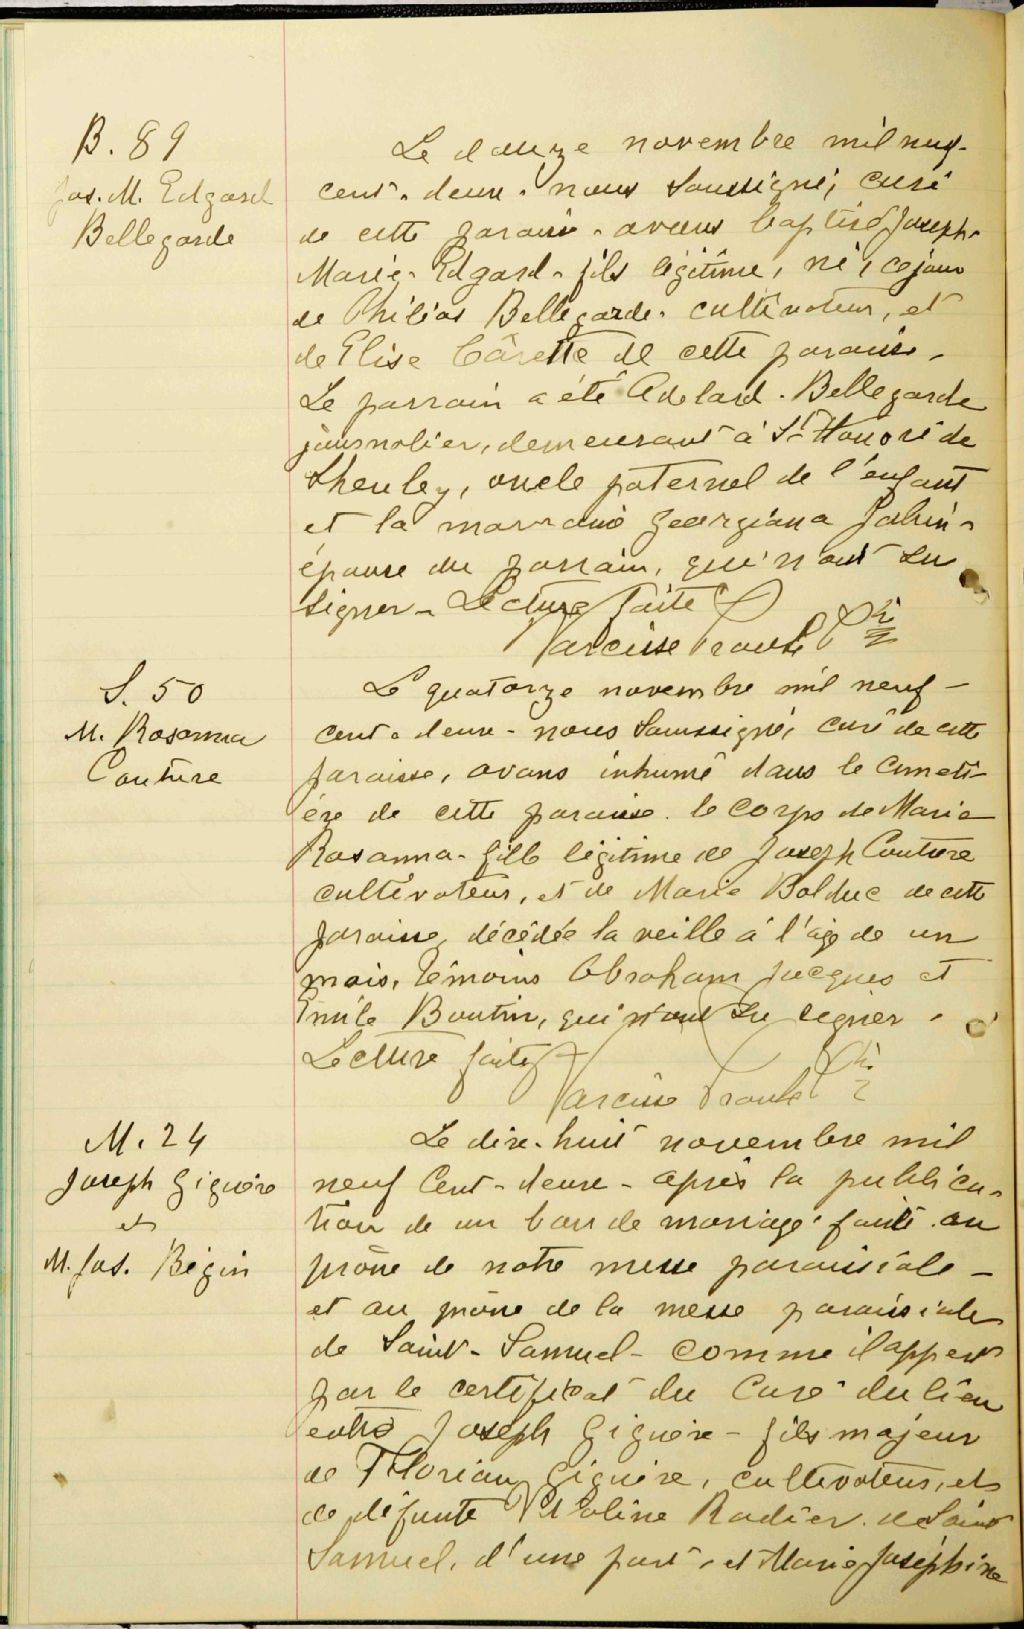 B. 89
Jos. M. Edgard
Bellegarde
Le douze novembre mil neuf-
cent-deux-nous soussigné, curé
de cette paroisse-avons baptisé Joseph-
Marie-Edgard-fils légitime, né, ce jour
de Philias Bellegarde-cultivateur, et
de Elise Cârette de cette paroisse.
Le parrain a été Adelard-Bellegarde
journalier, demeurant à St Honoré de
Shenley, oncle paternel de l'enfant
et la marraine Georgiana
épouse du parrain, qui n'ont su
signer-Lecture faite
Narcisse Proulx Ptre
S. 50
M. Rosanna
Couture
Le quatorze novembre mil neuf-
cent-deux-nous soussigné, curé de cette
paroisse, avons inhumé dans le cimeti-
ère de cette paroisse le corps de Marie
Rosanna-fille légitime de Joseph Couture
cultivateur, et de Marie Bolduc de cette
paroisse, décédée la veille à l'âge de un
mois, Témoins Abraham Jacques et
Emile Boutin, qui n'ont su signer.
Lecture faite
Narcisse Proulx Ptre
M. 24
Joseph Giguère
et
M. Jos. Bégin
Le dix-huit novembre mil
neuf Cent-deux-après la publica-
tion de un ban de mariage faite au
prône de notre messe paroissiale-
et au prône de la messe paroissiale
de Saint-Samuel-comme il appert
par le certificat du Curé du lieu
entre Joseph Giguère-fils majeur
de Florian Giguère, cultivateur, et
de défunte Rodier de Saint
Samuel, d'une part, et Marie Joséphine